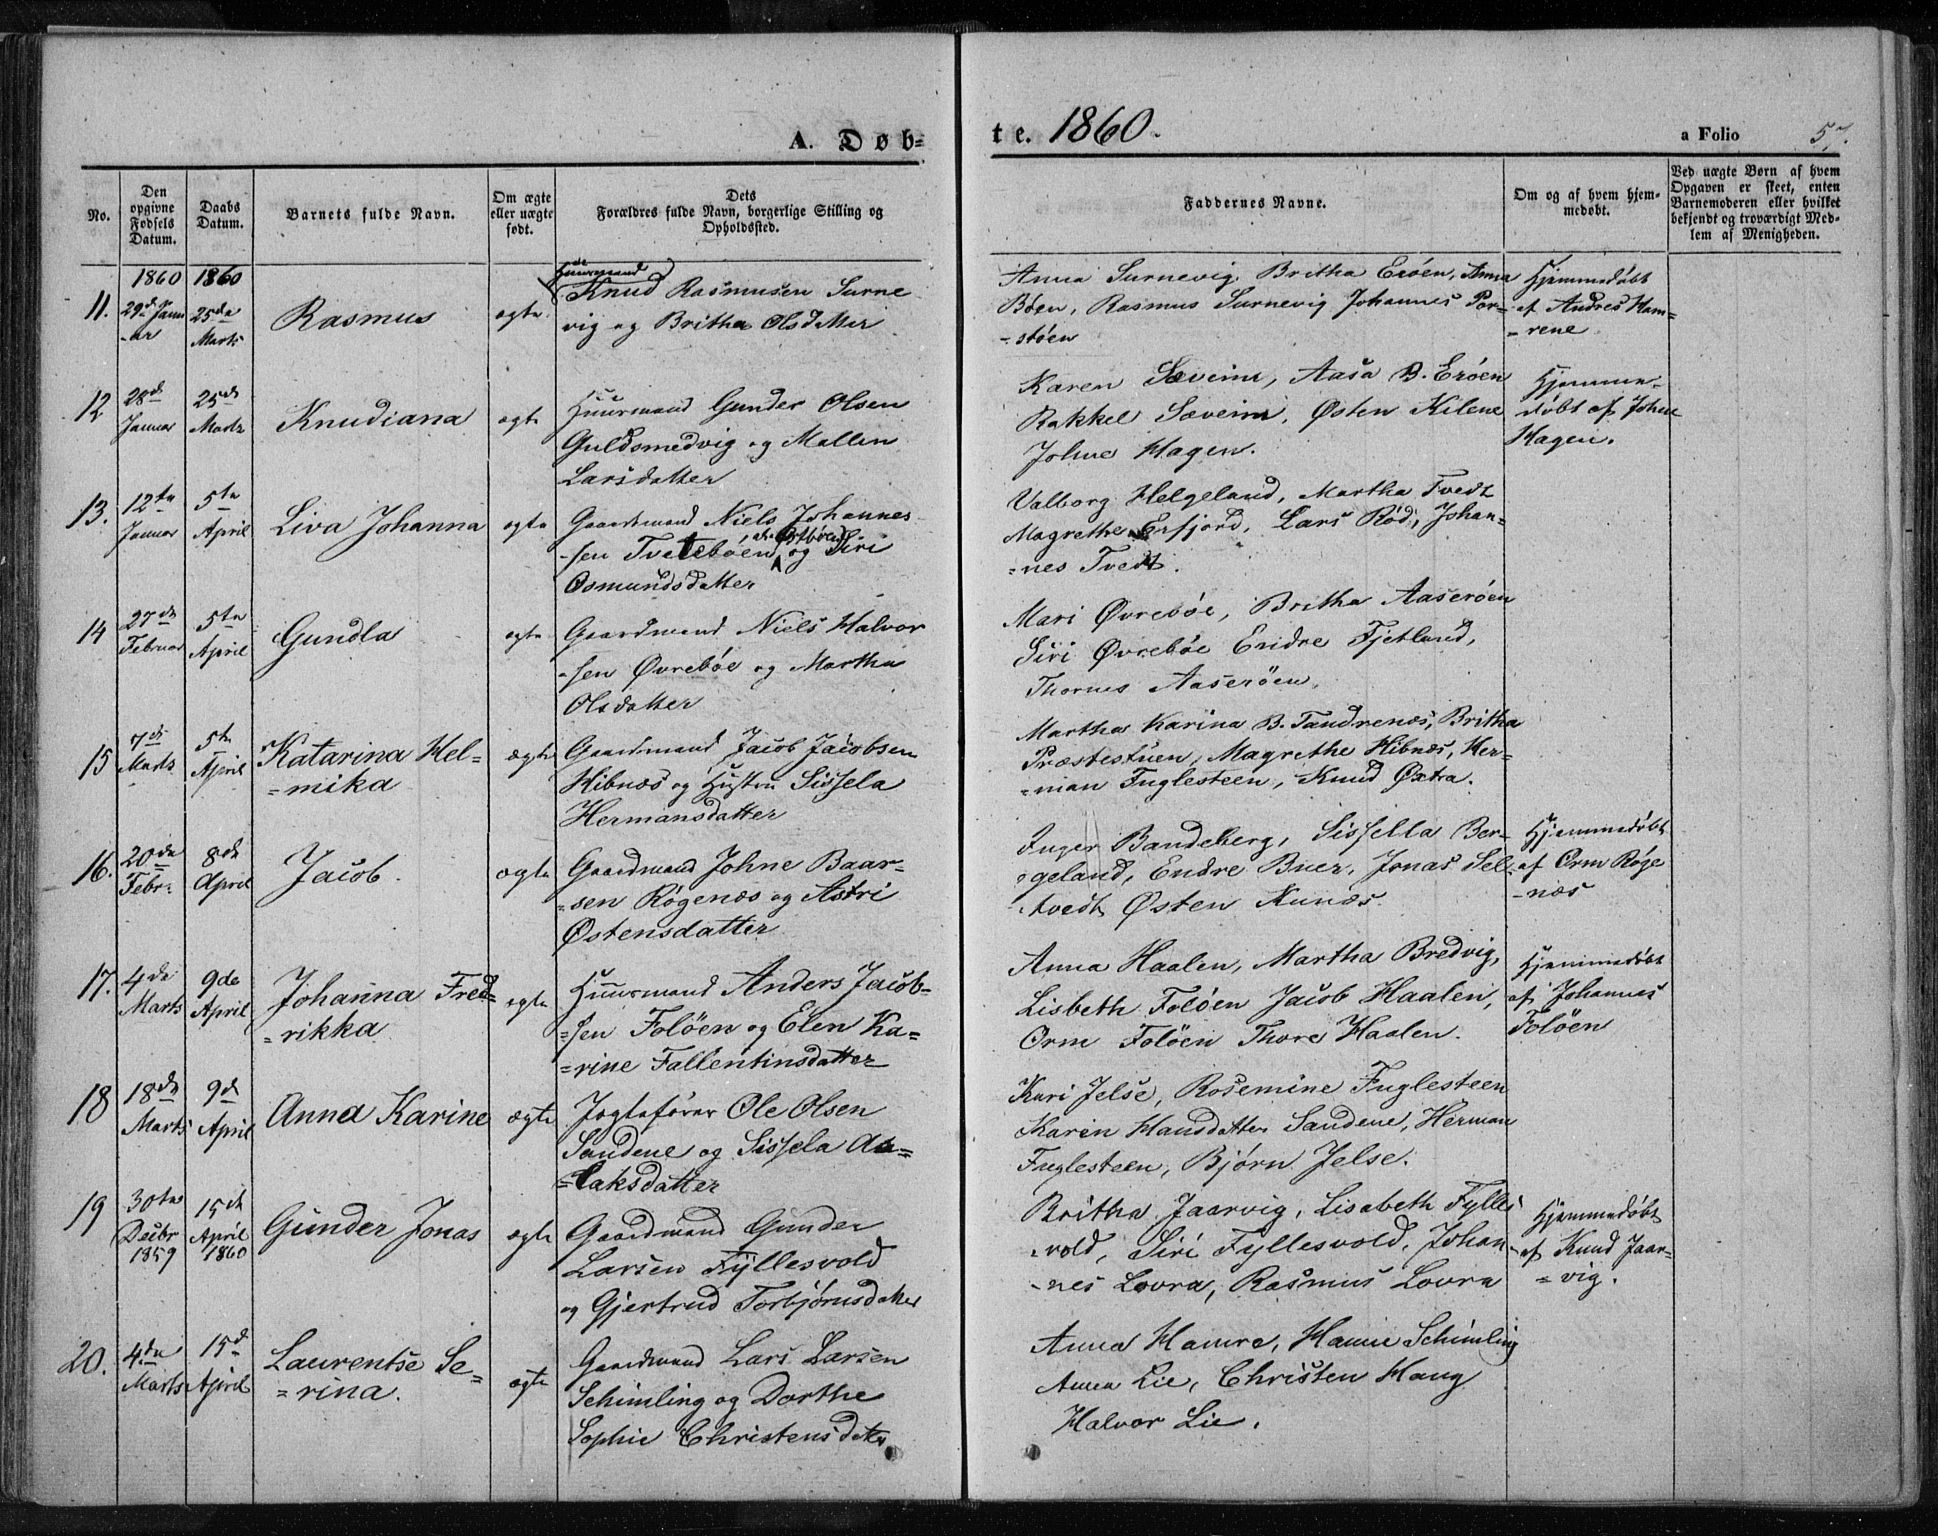 A. Døb-
te. 1860.
a Folio 57.
No.
Den opgivne Fødsels Datum.
Daabs Datum.
Barnets fulde Navn.
Om ægte eller uægte født.
Dets Forældres fulde Navn, borgerlige Stilling og Opholdssted.
Faddernes Navne.
Om og af hvem hjemmedøbt.
Ved uægte Børn af hvem Opgaven er skeet, enten Barnemoderen eller hvilket bekjendt og troværdigt Medlem af Menigheden.
1860 1860
11. 29de Janu-
-ar
25de
Marts
Rasmus
ægte
Huusmand
Knud Rasmusen Surne
vig og Britha Olsdatter
Anna Surnevig Britha Erøen, Anna
Böen, Rasmus Surnevig Johannes Por-
-støen
Hjemmedøbt
af Andres Ham-
-rene
12 28de
Januar
25de
Marts
Knudiana
ægte
Huusmand Gunder Olsen
Guldsmedvig og Mallen
Larsdatter
Karen Sæveim, Aasa B. Erøen
Rakkel Sæveim, Østen Kilene
Johne Hagen.
Hjemme-
døbt af Johne
Hagen.
13. 12te
Januar
5te
April
Liva Johanna
ægte
Gaardmand Niels Johannes-
-sen Tvetebøen og Siri
Osmundsdatter
Valborg Helgeland, Martha Tvedt
Magrethe Erfjord, Lars Rød, Johan-
=nes Tvedt.
14 27de
Februar
5te
April
Gundla
ægte
Gaardmand Niels Halvor
-sen Øvrebøe og Martha
Olsdatter
Mari Øvrebøe, Britha Aaserøen
Siri Øvrebøe Endre Fjetland,
Thornes Aaserøen.
15 7de
Marts
5te
April
Katarina Hel-
=mika
ægte
Gaardmand Jacob Jacobsen
Hibnæs og Hustru Sissela
Hermansdatter
Martha Karina B. Tandrenæs, Britha
Præstestuen, Magrethe Hibnæs, Her-
=man Fuglesteen, Knud Øxtra.
16. 20de
Febr.
8de
April
Jacob.
ægte
Gaardmand Johne Baar-
-sen Røgenæs og Astri
Østensdatter
Inger Bandeberg, Sissella Ber-
-geland, Endre Buer, Jonas Sel-
-tvedt Østen Nunæs
Hjemmedøbt
af Orm Røge
-næs
17. 4de
Marts
9de
April
Johanna Fred-
=rikka
ægte
Huusmand Anders Jacob-
=sen Foløen og Elen Ka-
=rine Fallentinsdatter
Anna Haalen, Martha Bredvig,
Lisbeth Foløen Jacob Haalen,
Orm Foløen Thore Haalen.
Hjemmedøbt
af Johannes
Foløen
18 18de
Marts
9de
April
Anna Karine
ægte
Jagtefører Ole Olsen
Sandene og Sissela As-
=laksdatter
Kari Jelse, Rosemine Fuglesteen
Karin Hansdatter Sandene, Herman
Fuglesteen, Bjørn Jelse.
19 30te
Decbr
1859
15de
April
1860
Gunder Jonas
ægte
Gaardmand Gunder
Larsen Fyllesvold
og Gjertrud Torbjørnsdatter
Britha Jaarvig, Lisabeth Fylles
-vold, Siri Fyllesvold, Johan-
-nes Lovra, Rasmus Lovra
Hjemmedøbt
af Knud Jaar-
=vig.
20. 4de
Marts
15de
April
Laurentse Se-
=rina.
ægte
Gaardmand Lars Larsen
Schimling og Dorthe
Sophie Christensdatter
Anna Hamre, Hanne Schimling
Anna Lie, Christen Haug
Halvor Lie.